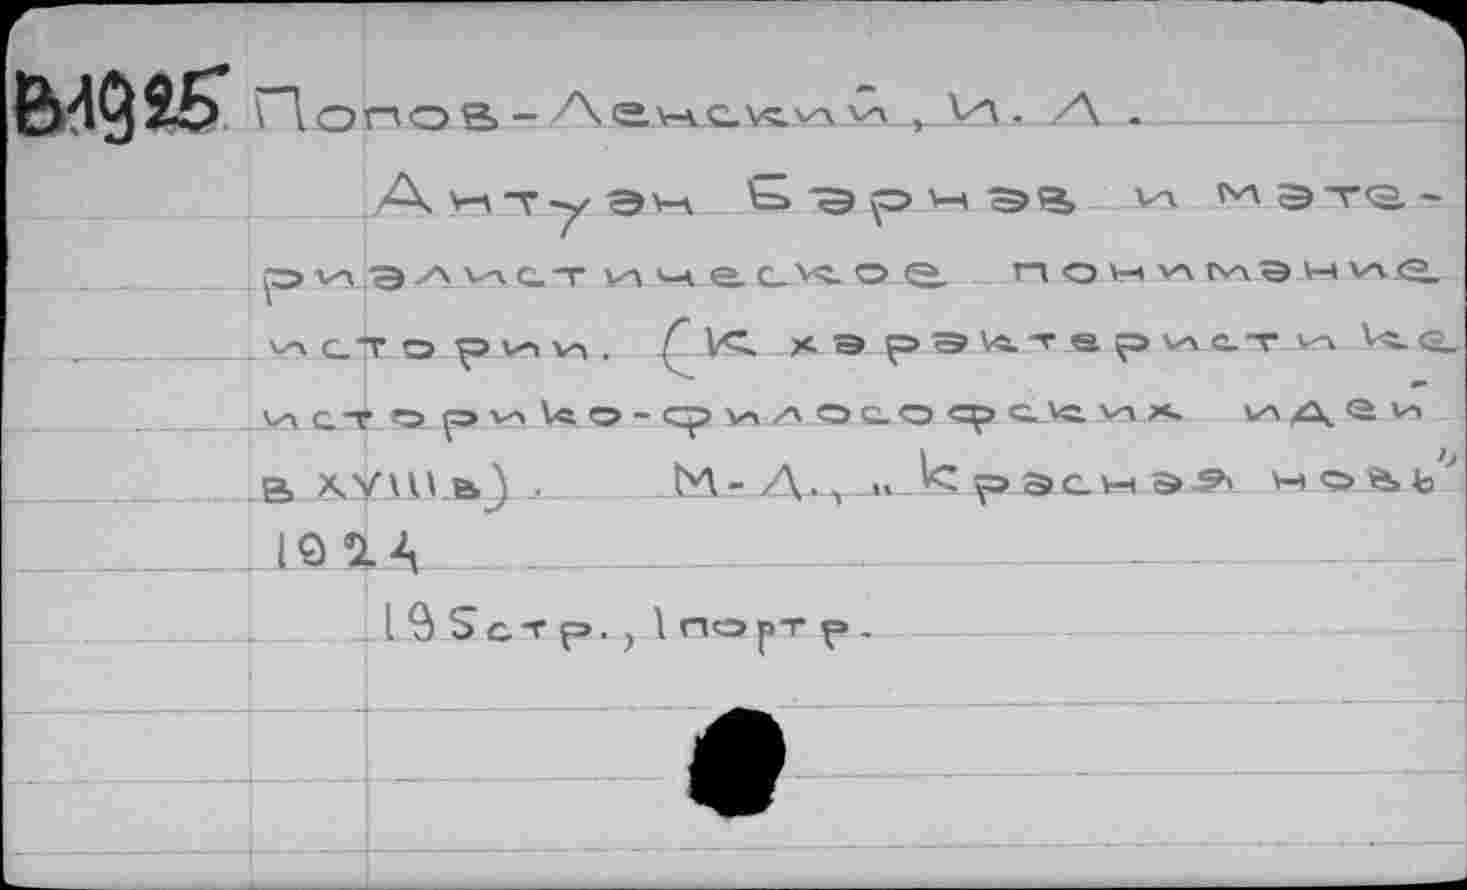 В1925 Попов-Ленский, И. Л.
Антуан Барнав и мате-
риалистическое понимание
истории. (К характеристике
историко-философских идей
в XVIII в.) . М-Л., „Красная новь"
1924
195 стр., 1 портр.